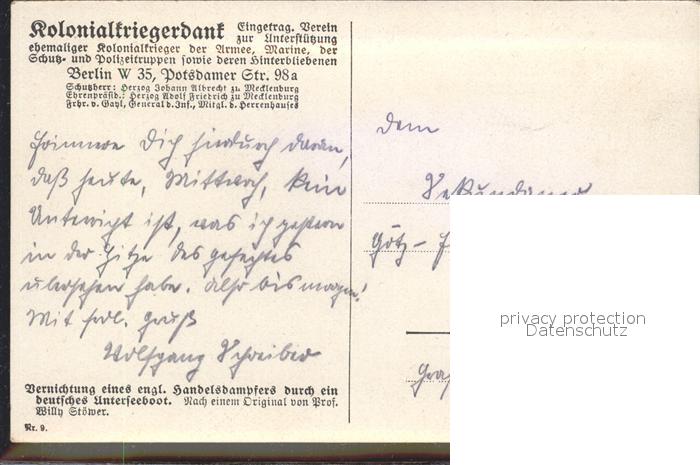 Kolonialkriegerdank Eingetrag. Verein
zur Unterstützung
ehemaliger Kolonialkrieger der Armee, Marine, der
Schutz- und Polizeitruppen sowie deren Hinterbliebenen
Berlin W 35, Potsdamer Str. 98a
Schutzherr: Herzog Johann Albrecht zu Mecklenburg
Ehrenpräsid.: Herzog Adolf Friedrich zu Mecklenburg
Frhr. v. Gayl, General d. Inf., Mitgl. d. Herrenhauses
Erinnere Dich hierdurch daran,
daß heute, Mittwoch, kein
Unterricht ist, was ich gestern
in der Hitze des Gefechtes
übersehen habe. Also bis morgen!
Mit frdl. Gruß
Wolfgang Schreiber
Dem
Sekundaner
Götz-
Vernichtung eines engl. Handelsdampfers durch ein
deutsches Unterseeboot. Nach einem Original von Prof.
Willy Stöwer.
Nr. 9.
privacy protection
Datenschutz